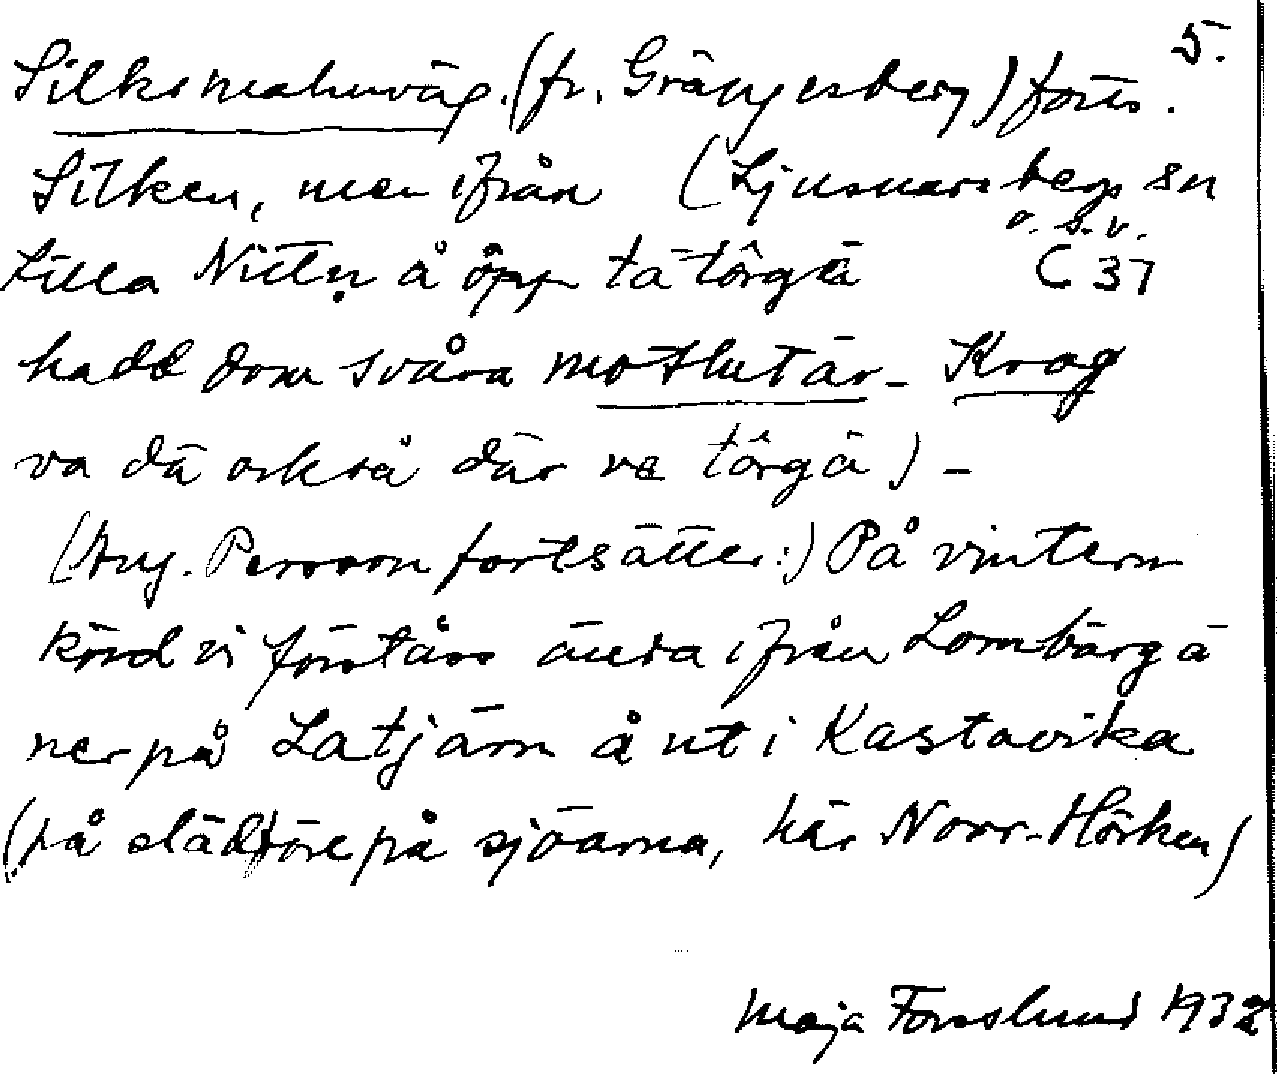 5.
Silksmalmväg. (fr. Grängesberg) forts.
Silken, men ifrån (Ljusnarsbergs sn
o. s. v.
Lilla Nittṇ å ôpp ta tôrgä C 37
hadd dom svåra motlutär - Krog
va dä också där ve tôrgä) -
(Aug. Persson fortsätter:) På vintern
körd vi förståss ända ifrån Lombärgä
ner på Latjärn å ut i Kastavika
(på slädföre på sjöarna, här Norr-Hörken)
Maja Forsslund 1932